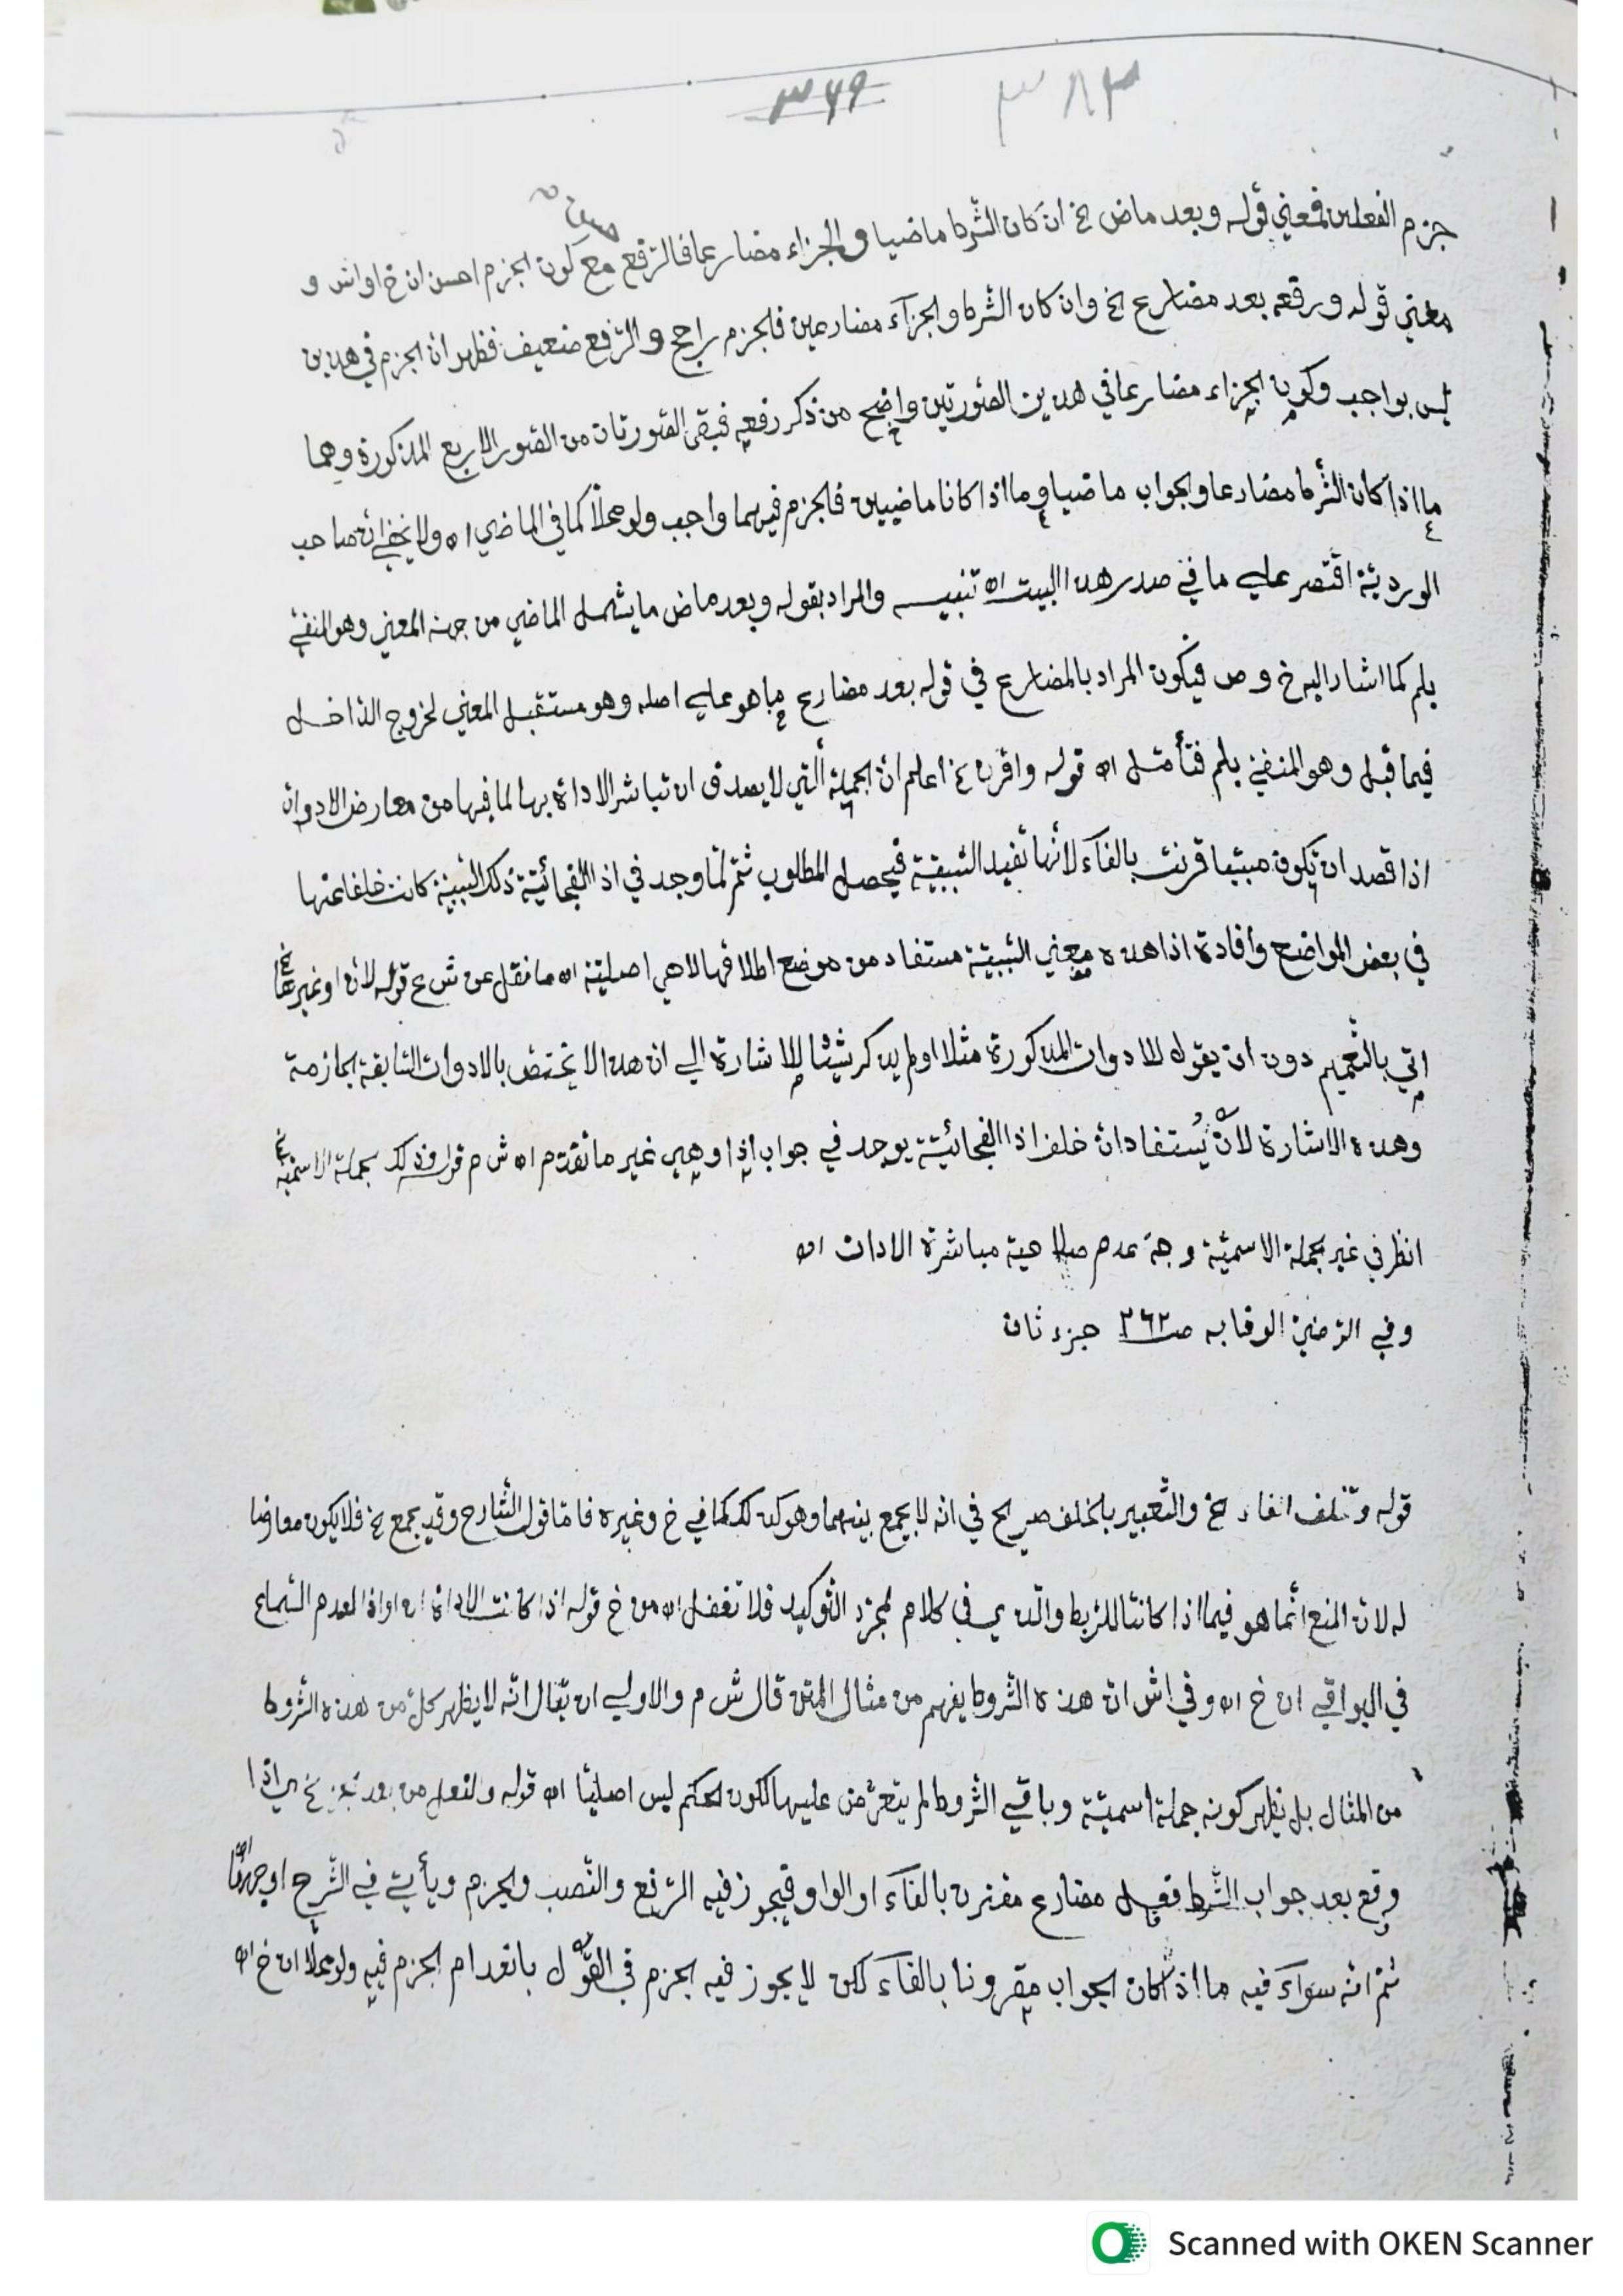 ٣٦٩ ٣٨٣
جزم الفعلين فمعني قوله وبعد ماض الخ ان كان الشرط ماضيا والجزاء مضارعا فالرفع مع كون الجزم احسن ان خ او اش و
معني قوله ورفعه بعد مضارع الخ وان كان الشرط والجزآء مضارعين فالجزم راجح والرفع ضعيف فظهر ان الجزم في هذين
ليس بواجب وكون الجزاء مضارعا في هذين الصورتين واضح من ذكر رفعه فبقي الصورتان من الصور الاربع المذكورة وهما
ما اذا كان الشرط مضارعا والجواب ماضيا وما اذا كانا ماضيين فالجزم فيهما واجب ولو محلا كما في الماضي اه ولا يخفي ان صاحب
الوردية اقتصر علي ما في صدر هذا البيت اه تنبيه والمراد بقوله وبعد ماض ما يشمل الماضي من جهة المعني وهو المنفي
بلم كما اشار اليه خ و ص فيكون المراد بالمضارع في قوله بعد مضارع ما هو علي اصله وهو مستقبل المعني لخروج الداخل
فيما قبل وهو المنفي بلم فتأمل اه قوله واقرن الخ اعلم ان الجملة التي لا يصدق ان تباشر الاداة بها لما فيها من معارض الادوات
اذا قصد ان تكون مسببا قرنت بالفآء لانها تفيد السببية فيحصل المطلوب ثم لما وجد في اذا الفجائية ذلك السببية كانت خلفا عنها
في بعض المواضع وافادة اذا هذه معني السببية مستفاد من موضع اطلاقها لا هي اصلية اه ما نقل عن ش ع قوله لان او غيرها الخ
اتي بالتعميم دون ان يقول للادوات المذكورة مثلا او لم يذكر شيئا للاشارة الي ان هذا لا يختص بالادوات السابقة الجازمة
وهذه الاشارة لان يستفاد ان خلف اذا الفجائية يوجد في جواب اذا وهي غير ما تقدم اه ش م قوله وذلك الجملة الاسمية الخ
انظر في غير الجملة الاسمية وجه عدم صلاحية مباشرة الادات اه
وفي الرضي الوقايه صـ ٢٦٢ جزء ثان
قوله وتخلف الفاء الخ والتعبير بالخلف صريح في انه لا يجمع بينهما وهو كذلك كما في خ وغيره فاما قول الشارح وقد يجمع الخ فلا يكون معارضا
له لان المنع انما هو فيما اذا كانتا للربط والذي في كلام لمجرد التوكيد فلا تغفل اه من خ قوله اذا كانت الاداة ان او اذا لعدم السماع
في البواقي ان خ اه وفي اش ان هذه الشروط يفهم من مثال المتن قال ش م والاولي ان يقال انه لا يظهر كل من هذه الشروط
من المثال بل يظهر كونه جملة اسمية وباقي الشروط لم يتعرض عليها لكون الحكم ليس اصليا اه قوله والفعل من بعد الخ اي اذا
وقع بعد جواب الشرط فعل مضارع مقترن بالفآء او الواو فيجوز فيه الرفع والنصب والجزم ويأتي في الشرح اوجهها اه
ثم انه سوآء فيه ما اذا كان الجواب مقرونا بالفآء لكن لا يجوز فيه الجزم في القول بانعدام الجزم فيه ولو محلا ان خ اه
Scanned with OKEN Scanner